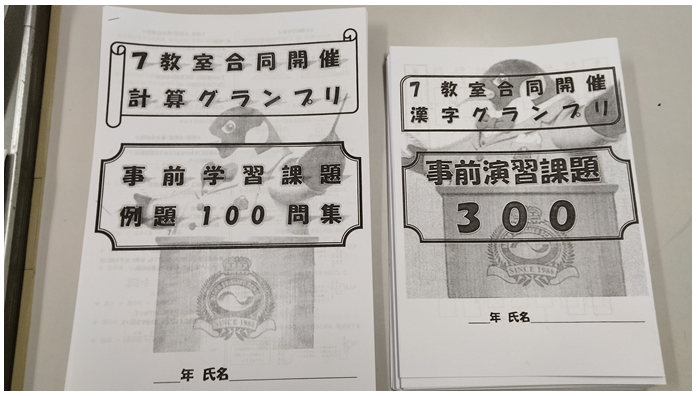 7教室合同開催
計算グランプリ
事前学習課題
例題100問集
SINCE 1988
___年 氏名_______________
7教室合同開催
漢字グランプリ
事前演習課題
300
SINCE 1988
___年 氏名_______________